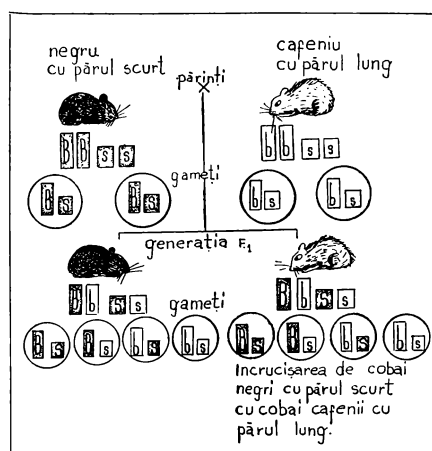 negru
cu părul scurt
cafeniu
cu părul lung
părinți
B B S S
b b s s
gameți
B S
B S
b s
b s
generația F1
B b S s
B b S s
gameți
B S
B s
b S
b s
B S
B s
b S
b s
Incrucișarea de cobai
negri cu părul scurt
cu cobai cafenii cu
părul lung.